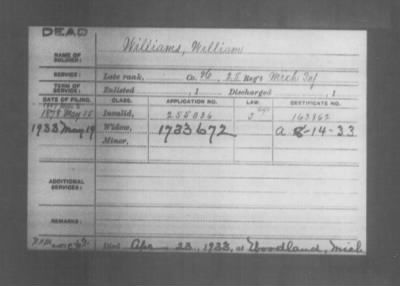 DEAD
NAME OF SOLDIER: Williams, William
SERVICE: Late rank, Co. 25 Reg't Mich Inf
TERM OF SERVICE: Enlisted , 1 Discharged , 1
DATE OF FILING. CLASS. APPLICATION NO. LAW. CERTIFICATE NO.
1879 May 15 Invalid, 255036 163862
1933 May 19 Widow, 1733672 A 8-14-33
Minor,
ADDITIONAL SERVICES:
REMARKS:
Died Apr 23, 1933, at Woodland, Mich